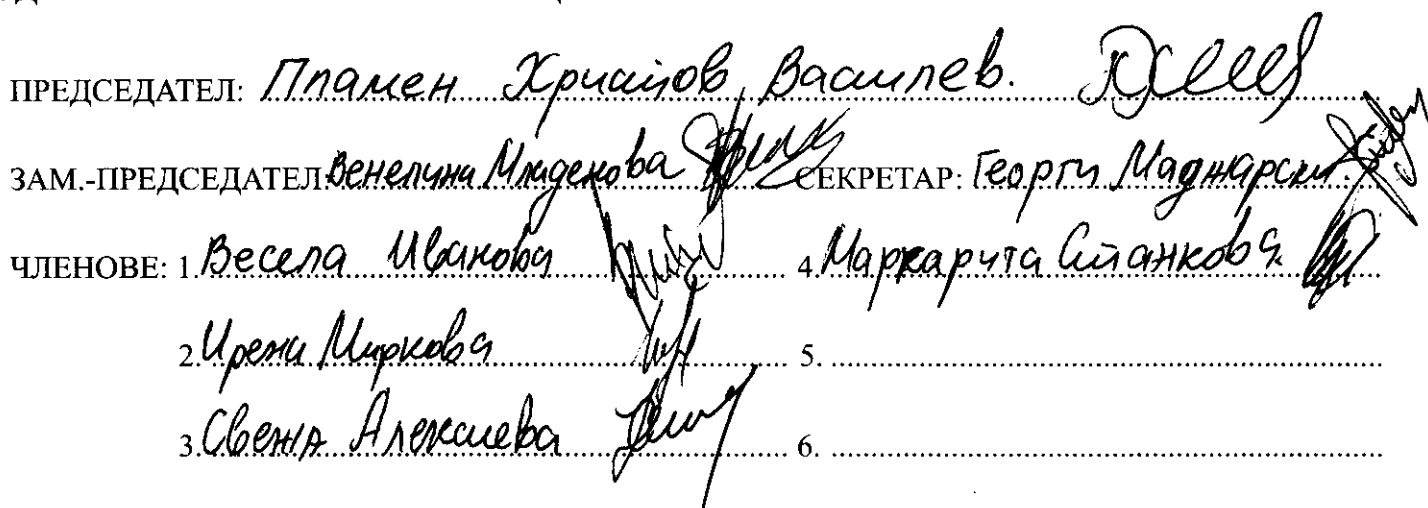 ПРЕДСЕДАТЕЛ: Пламен Христов Василев.
ЗАМ.-ПРЕДСЕДАТЕЛ Венелина Младенова СЕКРЕТАР: Георги Маджарски
ЧЛЕНОВЕ: 1. Весела Иванова 4. Маркарита Станкова
2. Ирена Миркова 5.
3. Свежа Алексиева 6.